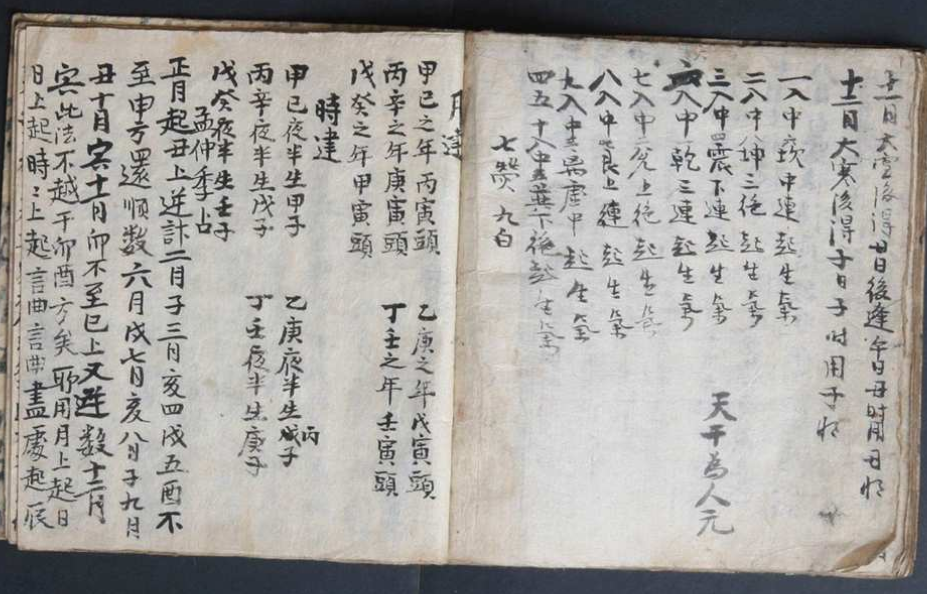 十二月大寒後得子日子時用子將
一入中坎中連起生氣
二入中坤三絕起生氣
三入中震下連起生氣
六入中乾三連起生氣
七入中兌上絕起生氣
八入中艮上連起生氣
九入中離虛中起生氣
四五十入中巽下絕起生氣
七赤 九白
天干為人元
月建
甲己之年丙寅頭 乙庚之年戊寅頭
丙辛之年庚寅頭 丁壬之年壬寅頭
戊癸之年甲寅頭
時建
甲己夜半生甲子 乙庚夜半生丙子
丙辛夜半生戊子 丁壬夜半生庚子
戊癸夜半生壬子
孟仲季占
正月起丑上逆計二月子三月亥四戌五酉不
至申方還順数六月戌七月亥八月子九月
丑十月寅十一月卯不至巳上又逆数十二月
寅此法不越于卯酉方矣聊用月上起日
日上起時時上起言曲言曲盡處起辰